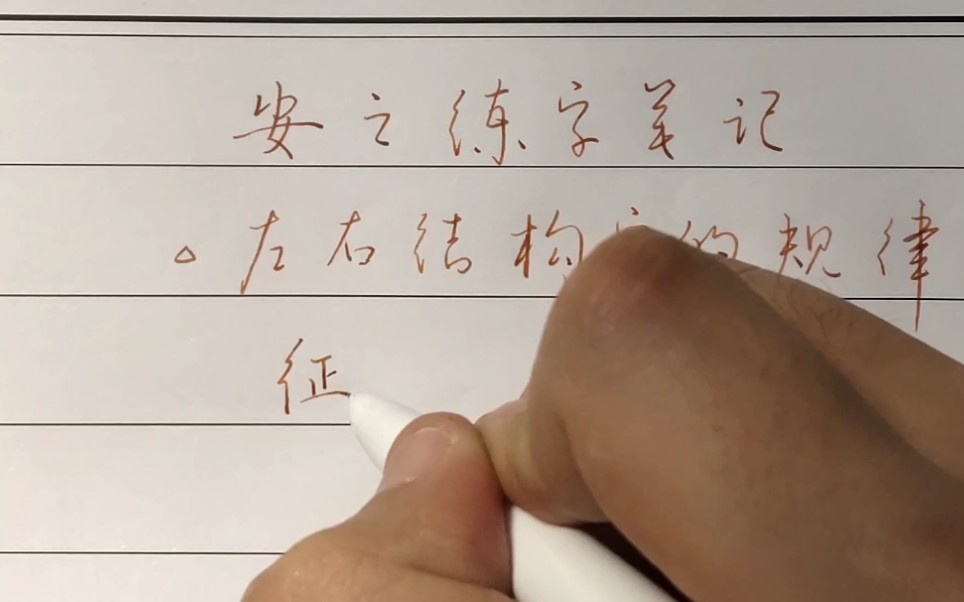 安之练字笔记
△左右结构字的规律
征